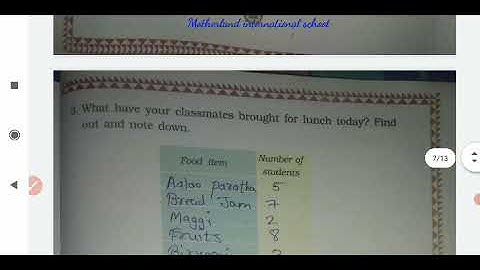 Motherland international school
3. What have your classmates brought for lunch today? Find
out and note down.
Food item Number of students
Aaloo paratha 5
Bread Jam 7
Maggi 2
Fruits 8
7/13